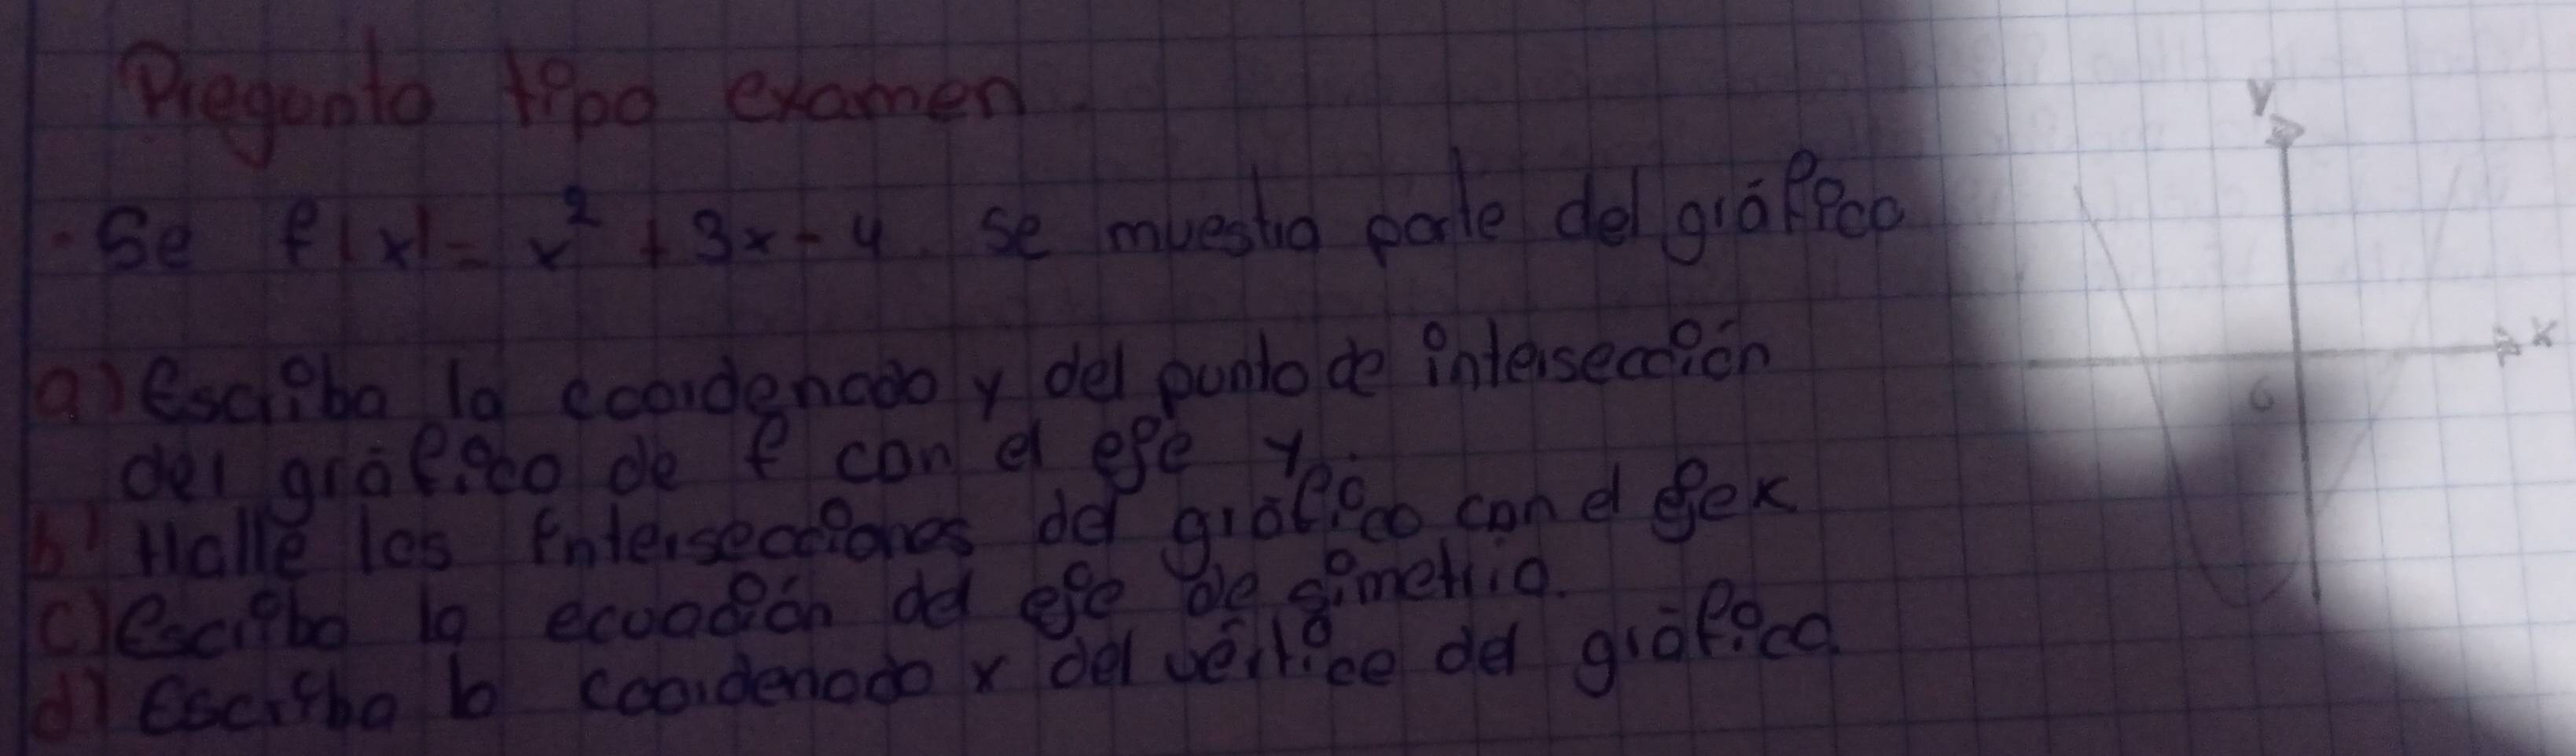 Pregunta tipo examen
Se f(x) = x² + 3x - 4. Se muestra parte del gráfico
a) Escriba la coordenada y del punto de intersección
del gráfico de f con el eje y.
b) Halle las intersecciones del gráfico con el eje x
c) escriba la ecuación del eje de simetria.
d) Escriba la coordenada x del vértice del gráfico.
y
x
0